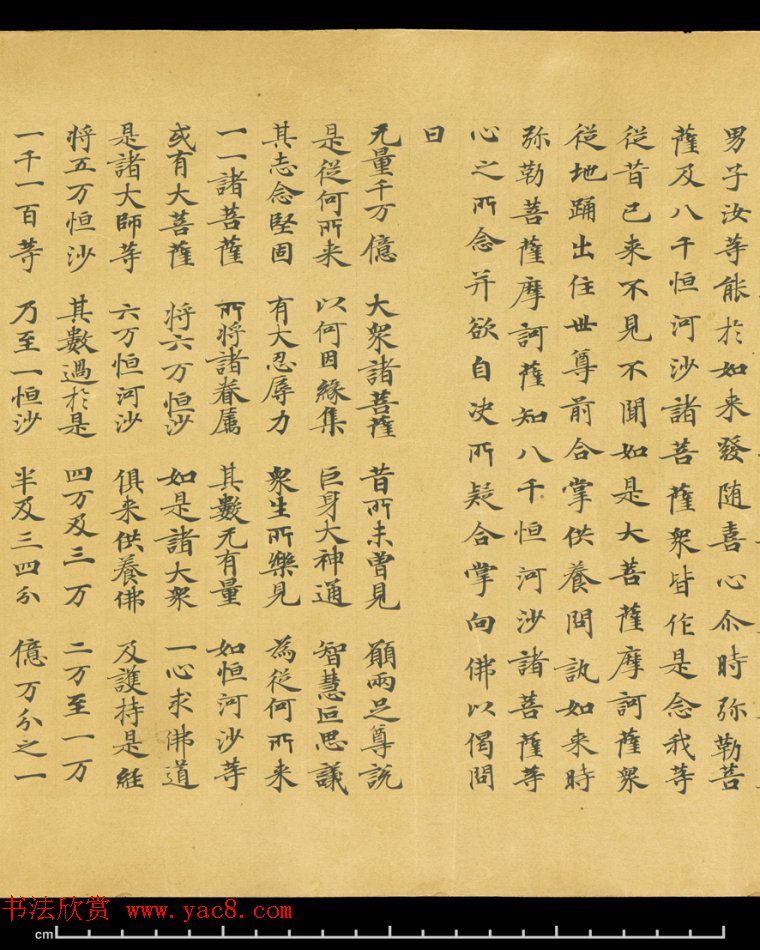 男子汝等能於如来發随喜心尒時弥勒菩
薩及八千恒河沙諸菩薩衆皆作是念我等
従昔已来不見不聞如是大菩薩摩訶薩衆
従地踊出住世尊前合掌供養問訊如来時
弥勒菩薩摩訶薩知八千恒河沙諸菩薩等
心之所念并欲自决所疑合掌向佛以偈問
曰
无量千万億 大衆諸菩薩 昔所未曽見 願兩足尊説
是従何所来 以何因緣集 巨身大神通 智慧叵思議
其志念堅固 有大忍辱力 衆生所樂見 為従何所来
一一諸菩薩 所将諸眷属 其數无有量 如恒河沙等
或有大菩薩 将六万恒沙 如是諸大衆 一心求佛道
是諸大師等 六万恒河沙 俱来供養佛 及護持是経
将五万恒沙 其數過於是 四万及三万 二万至一万
一千一百等 乃至一恒沙 半及三四分 億万分之一
书法欣赏 www.yac8.com
cm